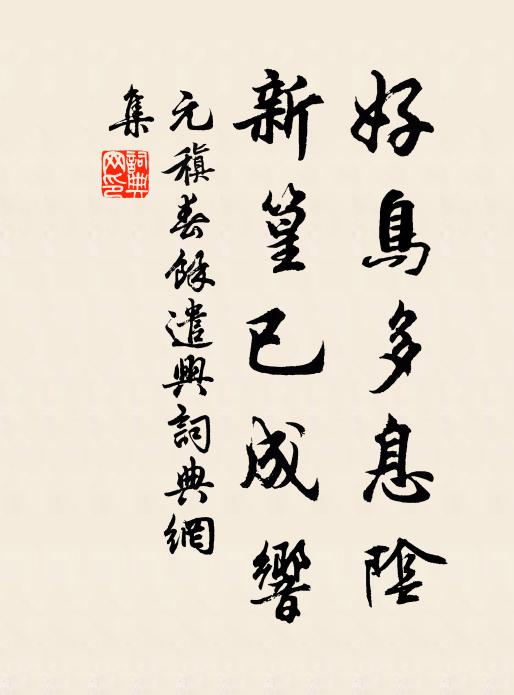 好鳥多息陰
新篁已成響
元稹春餘遣興詞典網
集
詞典網印